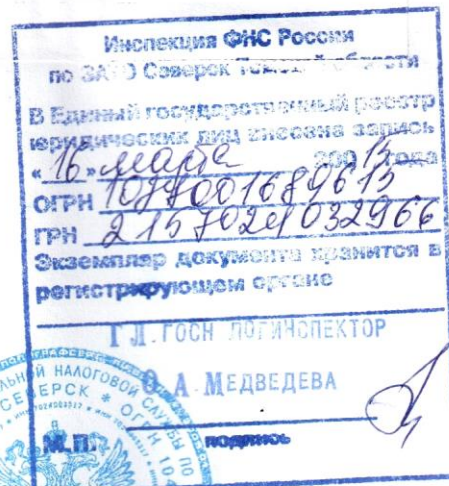 Инспекция ФНС России
по ЗАТО Северск Томской области
В Единый государственный реестр
юридических лиц внесена запись
«16» марта 20015 года
ОГРН
ГРН 2157024032966
Экземпляр документа хранится в
регистрирующем органе
ГЛ. ГОСНАЛОГИНСПЕКТОР
О.А. МЕДВЕДЕВА
М.П. подпись
НАЛОГОВОЙ СЛУЖБЫ ПО
СЕВЕРСК * ОГРН 104